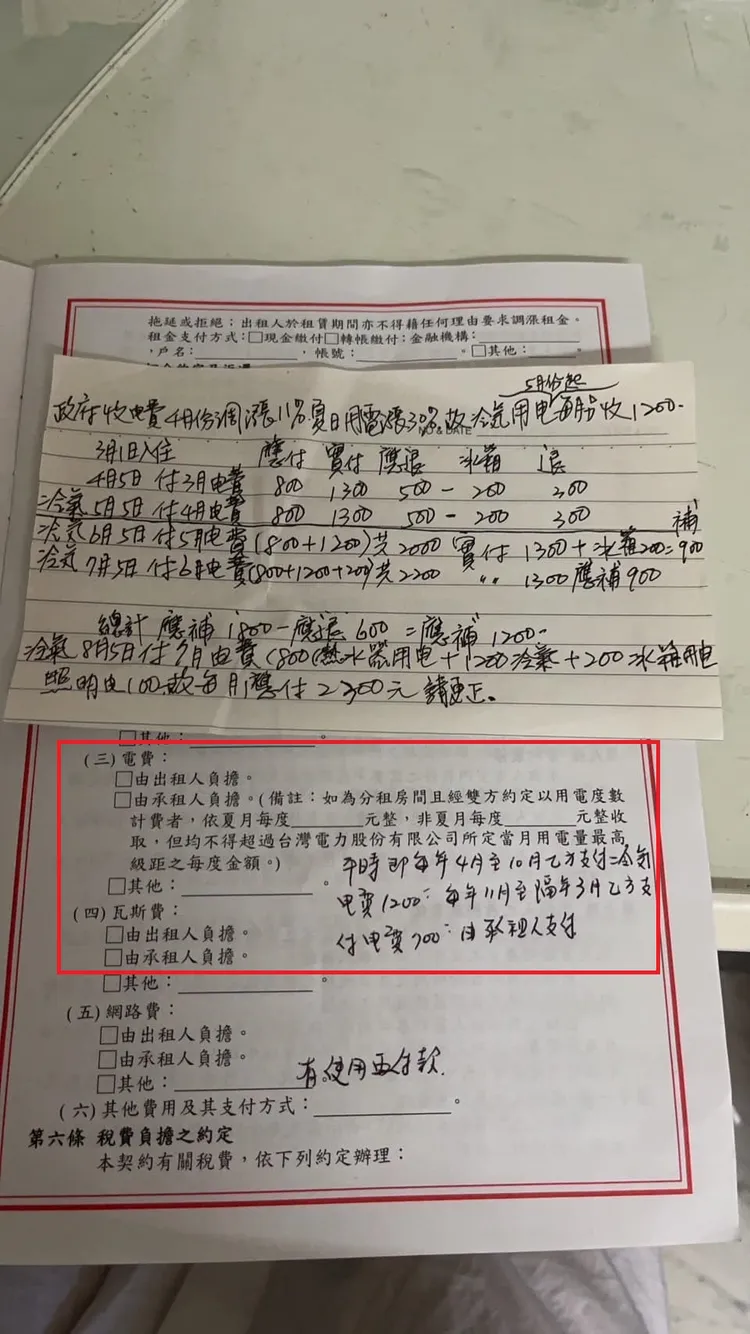 拖延或拒絕；出租人於租賃期間亦不得藉任何理由要求調漲租金。
租金支付方式：□現金繳付□轉帳繳付：金融機構：
，戶名： ，帳號： 。□其他： 。
5月份起
政府收电費4月份調漲11%夏日用電漲30%故冷氣用电每月收1200-
NO & DATE
3月1日入住 應付 實付 應退 冰箱 退
4月5日付3月电費 800 1300 500 - 200 300
冷氣5月5日付4月电費 800 1300 500 - 200 300
補
冷氣6月5日付5月电費(800+1200)共2000 實付 1300+冰箱200=900
冷氣7月5日付6月电費(800+1200+200)共2200 〃 1300應補900
總計 應補1800-應退600=應補1200-
冷氣8月5日付7月电費(800(熱水器用电+1200冷氣+200冰箱用电
照明电100故每月應付2300元請更正。
□其他： 。
(三)電費：
□由出租人負擔。
□由承租人負擔。(備註：如為分租房間且經雙方約定以用電度數
計費者，依夏月每度 元整，非夏月每度 元整收
取，但均不得超過台灣電力股份有限公司所定當月用電量最高
級距之每度金額。)
□其他： 。
平時即每年4月至10月乙方支付冷氣
电費1200- 每年11月至隔年3月乙方支
付电費700- 由承租人支付
(四)瓦斯費：
□由出租人負擔。
□由承租人負擔。
□其他： 。
(五)網路費：
□由出租人負擔。
□由承租人負擔。
□其他： 。
有使用再付款.
(六)其他費用及其支付方式： 。
第六條 稅費負擔之約定
本契約有關稅費，依下列約定辦理：